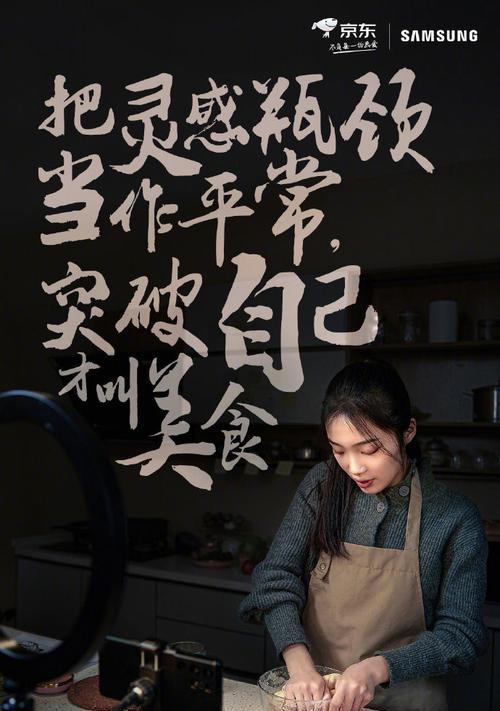 京东
不负每一份热爱
SAMSUNG
把灵感瓶颈
当作平常，
突破自己
才叫美食